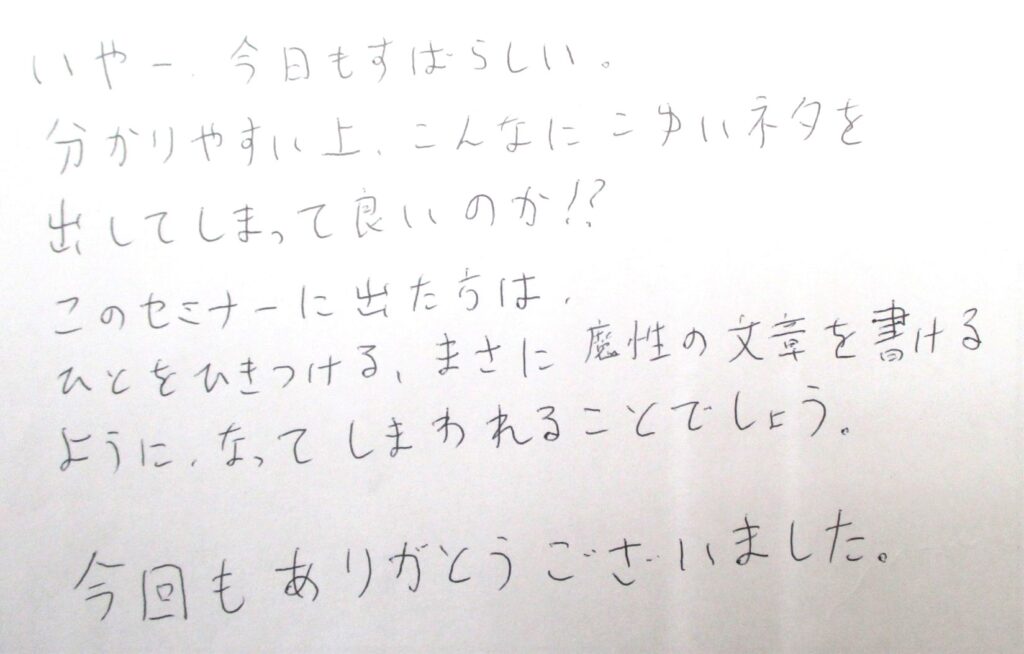 いやー、今日もすばらしい。
分かりやすい上、こんなにこゆいネタを
出してしまって良いのか!!?
このセミナーに出た方は、
ひとをひきつける、まさに魔性の文章を書ける
ように、なってしまわれることでしょう。
今回もありがとうございました。